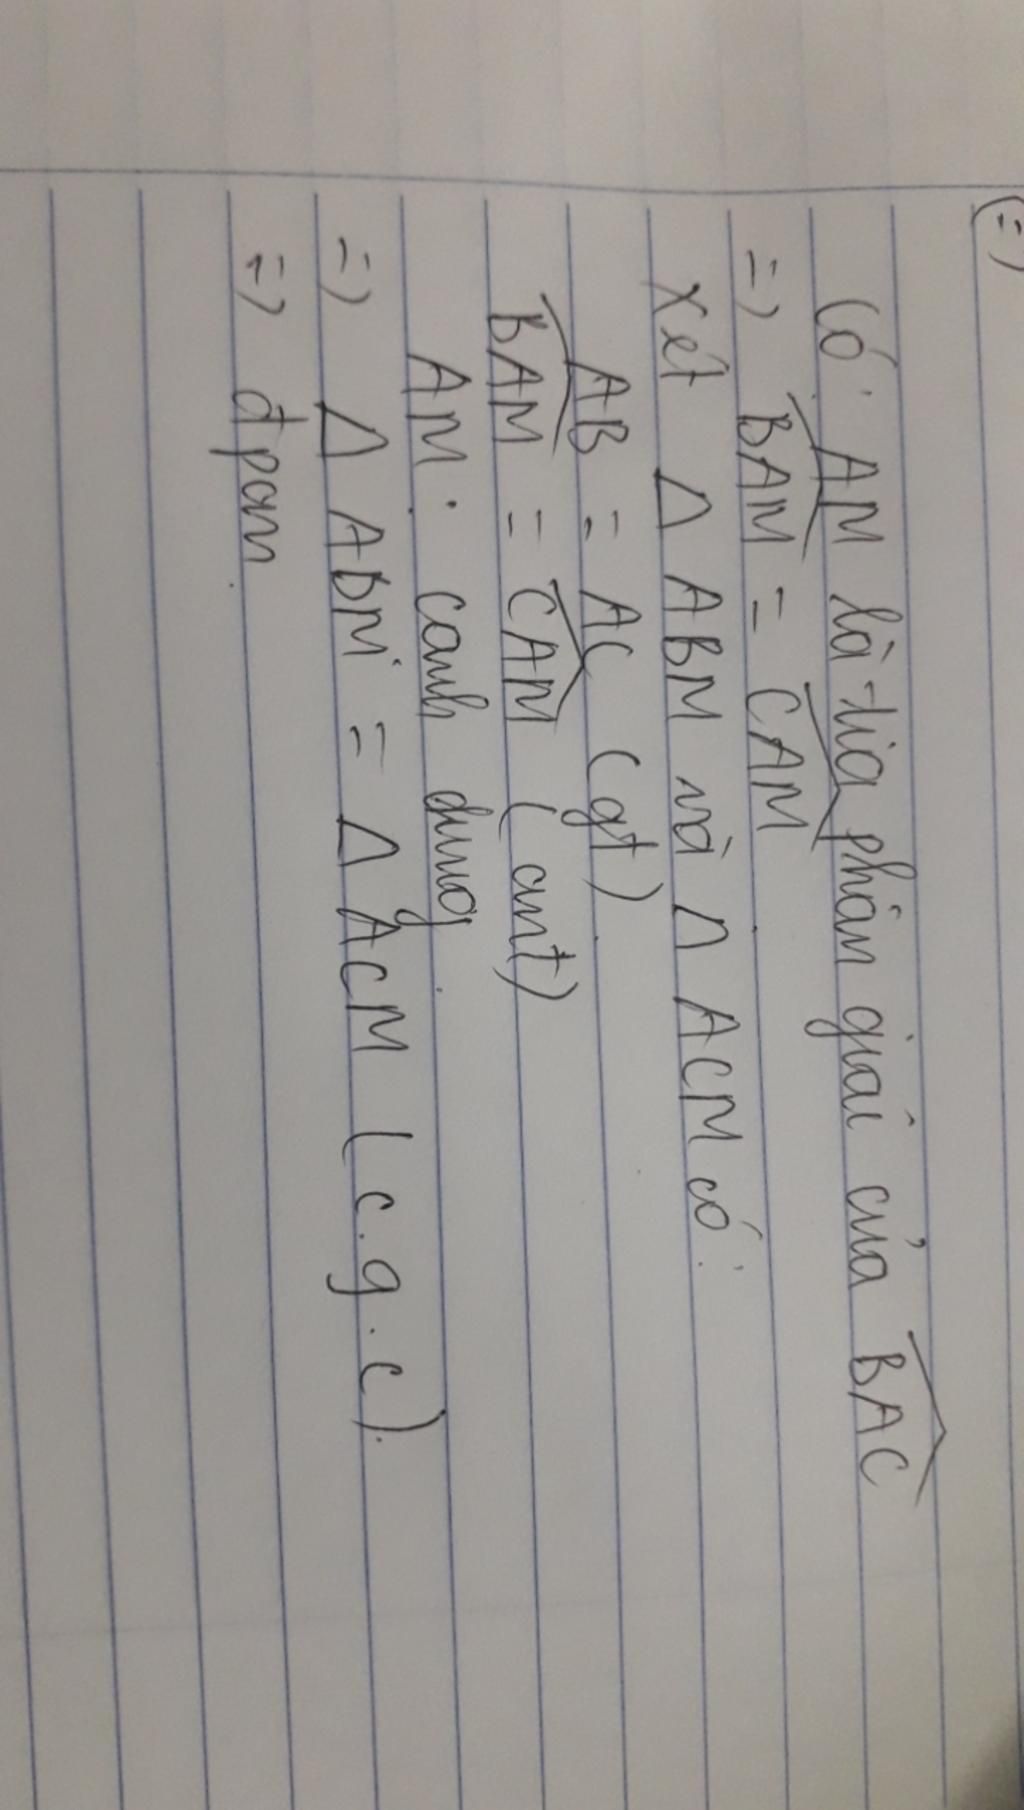 Có: AM là tia phân giác của BAC
=> BAM = CAM
Xét Δ ABM và Δ ACM có:
AB = AC (gt)
BAM = CAM (cmt)
AM: cạnh chung
=> Δ ABM = Δ ACM (c.g.c).
=> đpcm